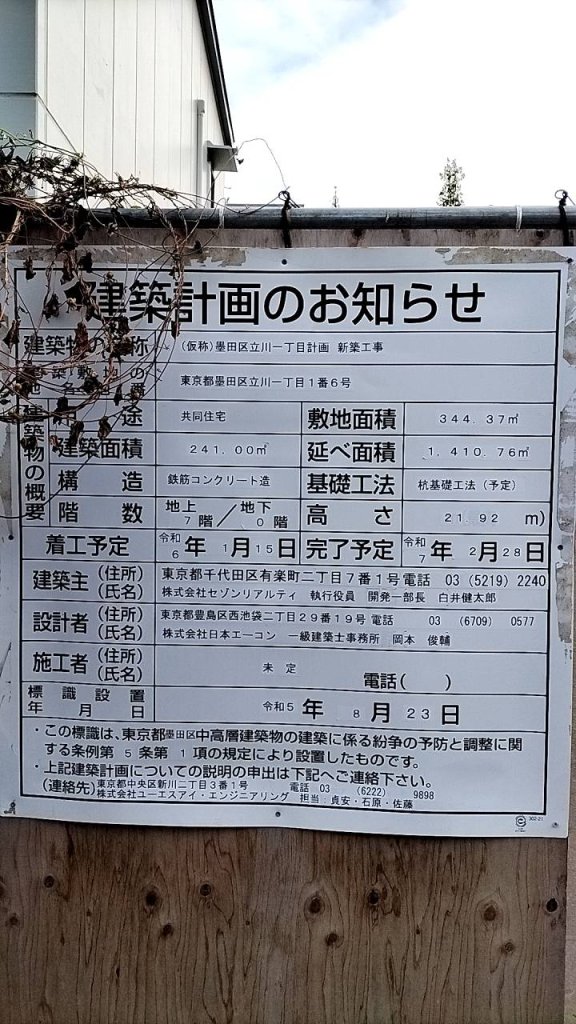 建築計画のお知らせ
建築物の名称 (仮称)墨田区立川一丁目計画 新築工事
建築敷地の地名地番 東京都墨田区立川一丁目1番6号
建築物の概要
用途 共同住宅 敷地面積 344.37㎡
建築面積 241.00㎡ 延べ面積 1,410.76㎡
構造 鉄筋コンクリート造 基礎工法 杭基礎工法(予定)
階数 地上7階/地下0階 高さ 21.92 m)
着工予定 令和6年1月15日 完了予定 令和7年2月28日
建築主(住所)(氏名) 東京都千代田区有楽町二丁目7番1号 電話 03(5219)2240
株式会社セゾンリアルティ 執行役員 開発一部長 白井健太郎
設計者(住所)(氏名) 東京都豊島区西池袋二丁目29番19号 電話 03(6709)0577
株式会社日本エーコン 一級建築士事務所 岡本 俊輔
施工者(住所)(氏名) 未定 電話( )
標識設置年月日 令和5年8月23日
・この標識は、東京都墨田区中高層建築物の建築に係る紛争の予防と調整に関
する条例第5条第1項の規定により設置したものです。
・上記建築計画についての説明の申出は下記へご連絡下さい。
(連絡先) 東京都中央区新川二丁目3番1号 電話 03(6222)9898
株式会社ユーエスアイ・エンジニアリング 担当:貞安・石原・佐藤
302-21